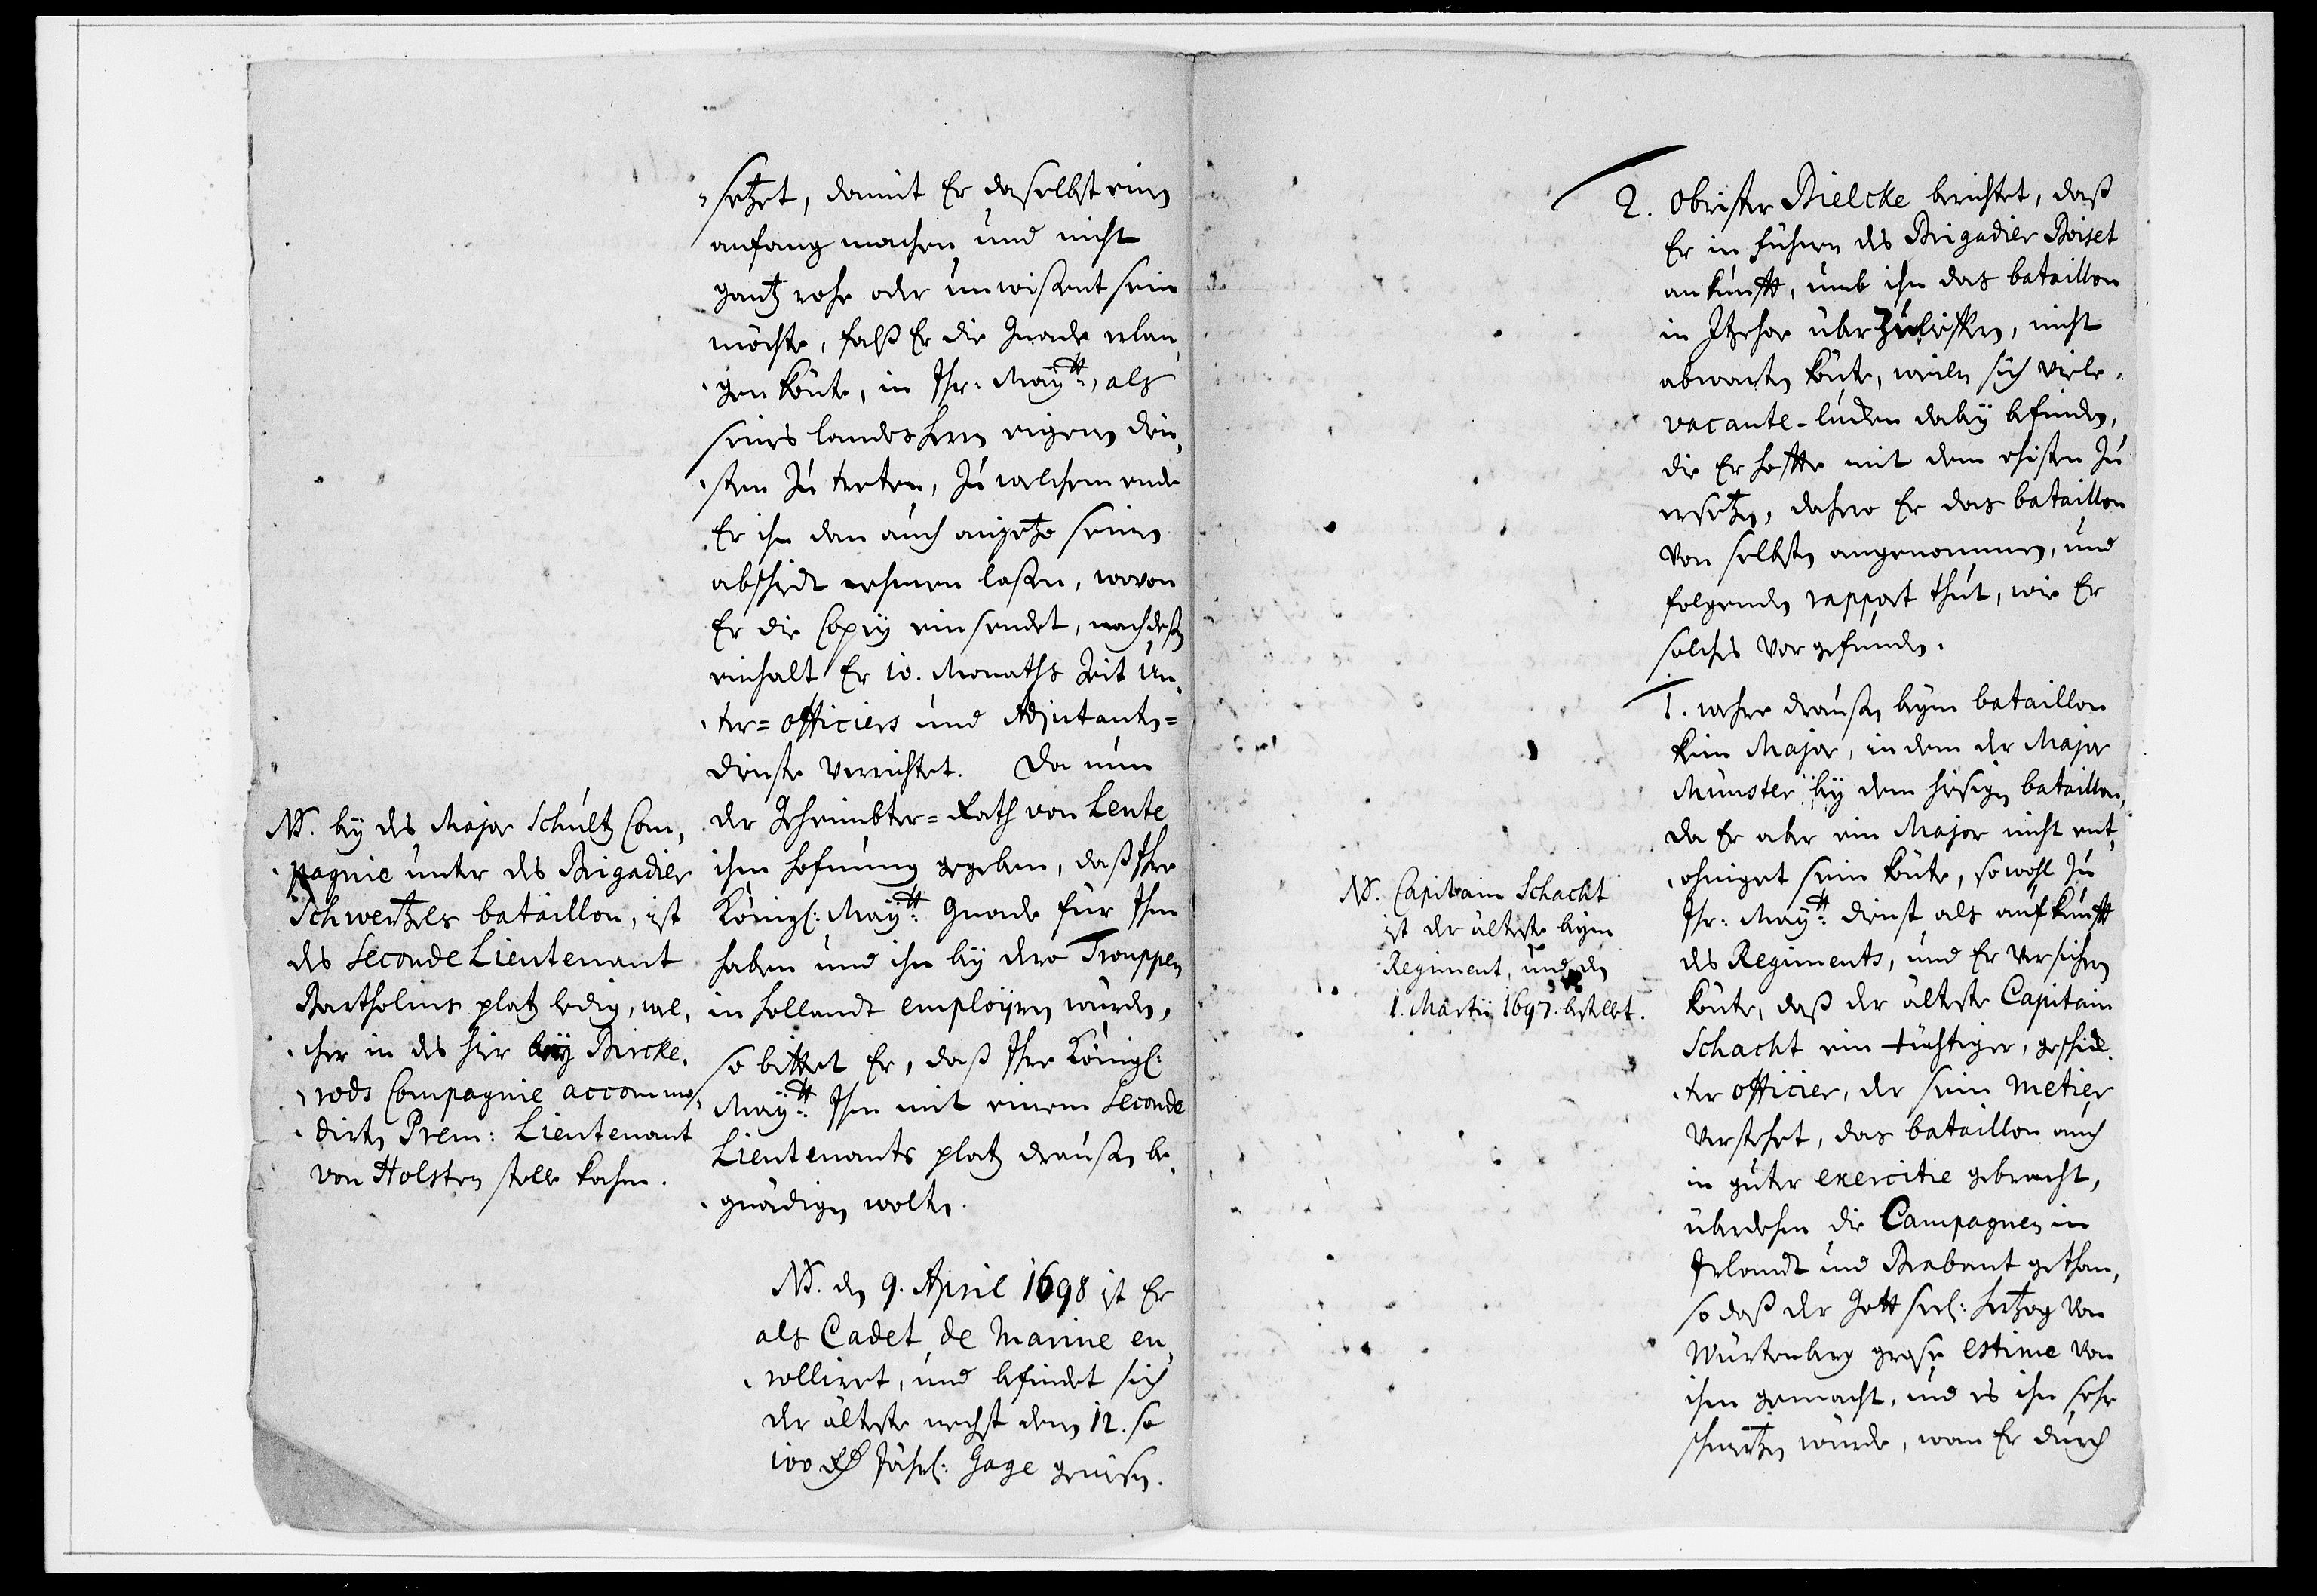 setzet, damit Er daselbst einen
anfang machen und nicht
gantz rohe oder unwißent sein
möchte, falß Er die Gnade erlan,
gen könte, in Ihr: Maytt:, als
seines landes herrn eigenen dien,
sten zu treten, zu welchem ende
Er ihn dan auch anjetzo seinen
abschiedt nehmen laßen, wovon
Er die Copiy einsendet, nach deßen
einhalt Er 10. Monaths Zeit Un,
ter=officiers und Adjutanten=
dienste verrichtet. Da nun
der Geheimbter=Rath von Lente
ihm hofnung gegeben, daß Ihre
Königl: Maytt: Gnade für Ihm
haben und ihn bey dero Trouppen
in hollandt employren würden,
so bittet Er, daß Ihre Königl:
Maytt: Ihm mit einem Seconde
Lieutenants platz draußen be,
gnädigen wolten.
NB. den 9. April 1698 ist Er
als Cadet de Marine en,
rolliret, und befindet sich
der älteste nechst denen 12. so
100 Rd Jährl: Gage genießen.
NB. bey des Major Schultz Com,
pagnie unter des Brigadier
Schwertzels bataillon, ist
des Seconde Lieutenant
Bartholins platz ledig, wel,
cher in des hier bey Bircke,
rods Compagnie accommo,
dirten Prem: Lieutenant
von Holsten stelle kahm.
2. Obrister Bielcke berichtet, daß
Er in führen des Brigadier Boiset
ankunfft, umb ihn das bataillon
in Itzehoe über zu liefften, nicht
abwarten könte, weilen sich viele
vacante-lucken dabey befinden,
die Er hoffte mit dem ehisten zu
ersetzen, dahero Er das bataillon
von selbsten angenommen, und
folgenden rapport thut, wie Er
solches vor gefunden.
1. wehre draußen beym bataillon
kein Major, in dem der Major
Münster bey dem hiesigen bataillon,
da Er aber ein Major nicht ent,
ohniget sein könte, so wohl zu
Ihr: Maytt: dienst als aufkunfft
des Regiments, und Er versichern
könte, daß der älteste Capitain
Schacht ein tüchtiger, geschick,
ter officier, der sein metier
verstehet, das bataillon auch
in guter exercitie gebracht,
überdehm die Campagnen in
Irlandt und Brabant gethan,
so daß der Gott seel: hertzog von
Würtenberg große estime von
ihm gemacht, und es ihn sehr
schmertzen würde, wan Er durch
NB. Capitain Schacht
ist der älteste beym
Regiment, und den
1. Martij 1697. bestellet.